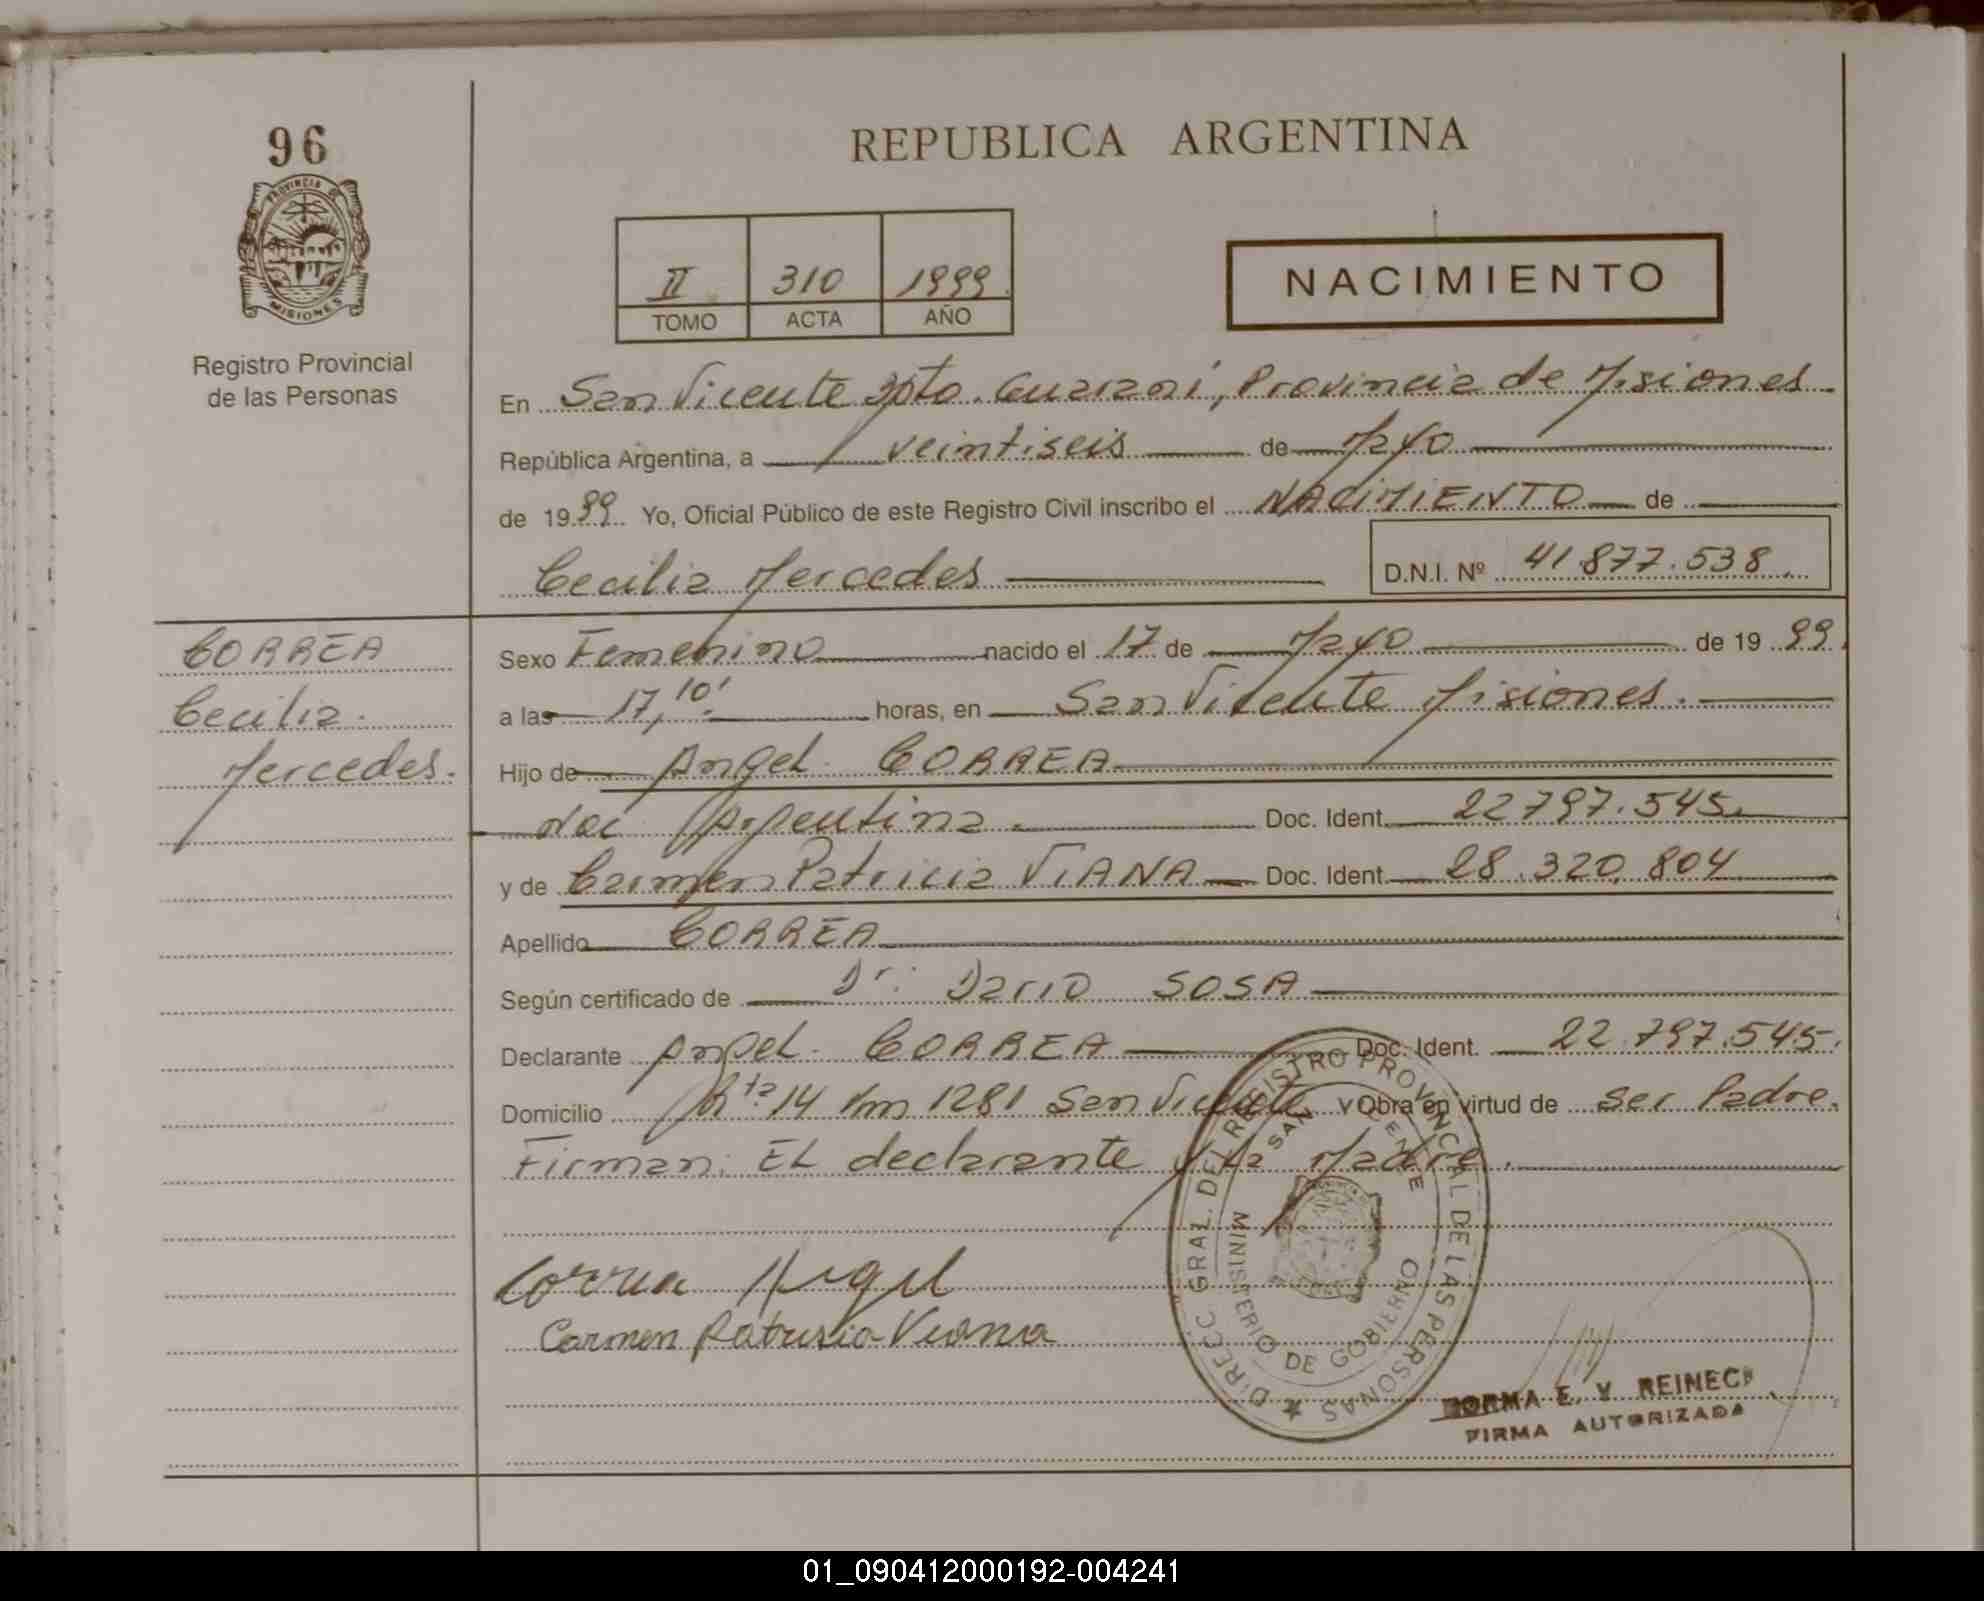 96
REPUBLICA ARGENTINA
PROVINCIA DE
MISIONES
Registro Provincial
de las Personas
II 310 1999
TOMO ACTA AÑO
NACIMIENTO
En San Vicente Dpto. Guarani, Provincia de Misiones
República Argentina, a veintiseis de Mayo
de 1999 Yo, Oficial Público de este Registro Civil inscribo el NACIMIENTO de
Cecilia Mercedes D.N.I. Nº 41.877.538
CORREA
Cecilia
Mercedes.
Sexo Femenino nacido el 17 de Mayo de 1999.
a las 17,10' horas, en San Vicente Misiones.
Hijo de Angel CORREA
Nac Argentina. Doc. Ident. 22797.545
y de Carmen Patricia VIANA Doc. Ident. 28.320.804
Apellido CORREA
Según certificado de Dr. Dario SOSA
Declarante Angel CORREA Doc. Ident. 22.797.545.
Domicilio Rta 14 Km 1281 San Vicente y Obra en virtud de ser Padre.
Firman: EL declarante y La Madre.
Correa Angel
Carmen Patrisia Viana
DIRECC. GRAL. DEL REGISTRO PROVINCIAL DE LAS PERSONAS
SAN VICENTE
MINISTERIO DE GOBIERNO
NORMA E. V. REINECK
FIRMA AUTORIZADA
01_090412000192-004241